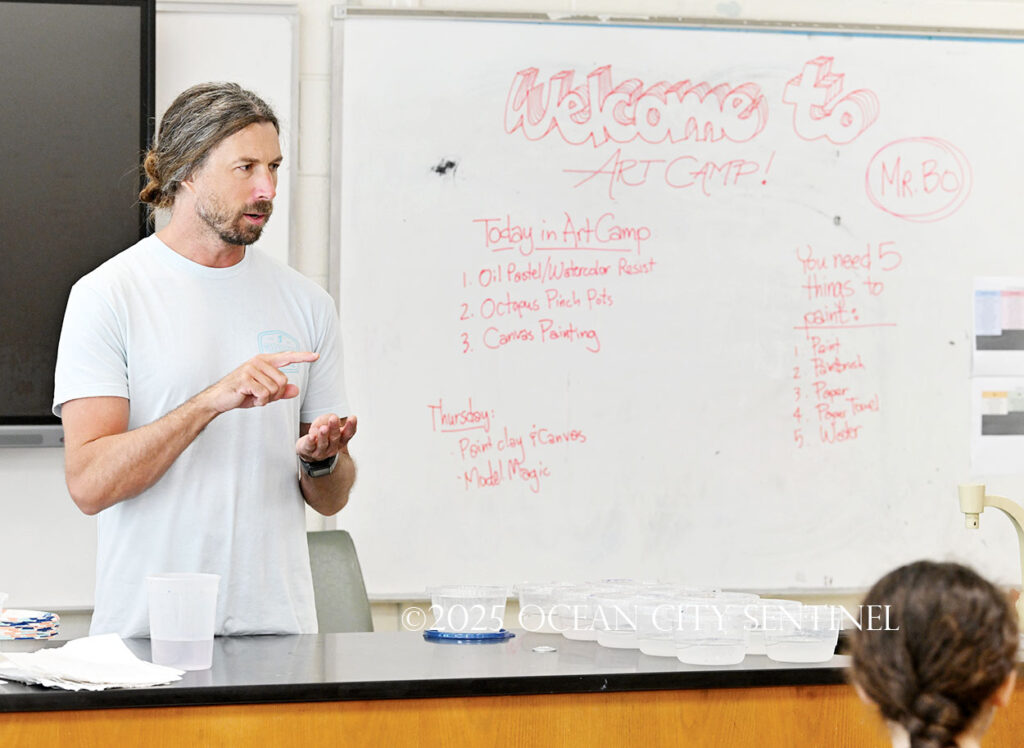 Welcome to
ART CAMP!
MR. BO
Today in Art Camp
1. Oil Pastel/Watercolor Resist
2. Octopus Pinch Pots
3. Canvas Painting
You need 5
things to
paint:
1 Paint
2 Paintbrush
3 Paper
4 Paper Towel
5. Water
Thursday:
· Paint clay & Canvas
· Model Magic
©2025 OCEAN CITY SENTINEL